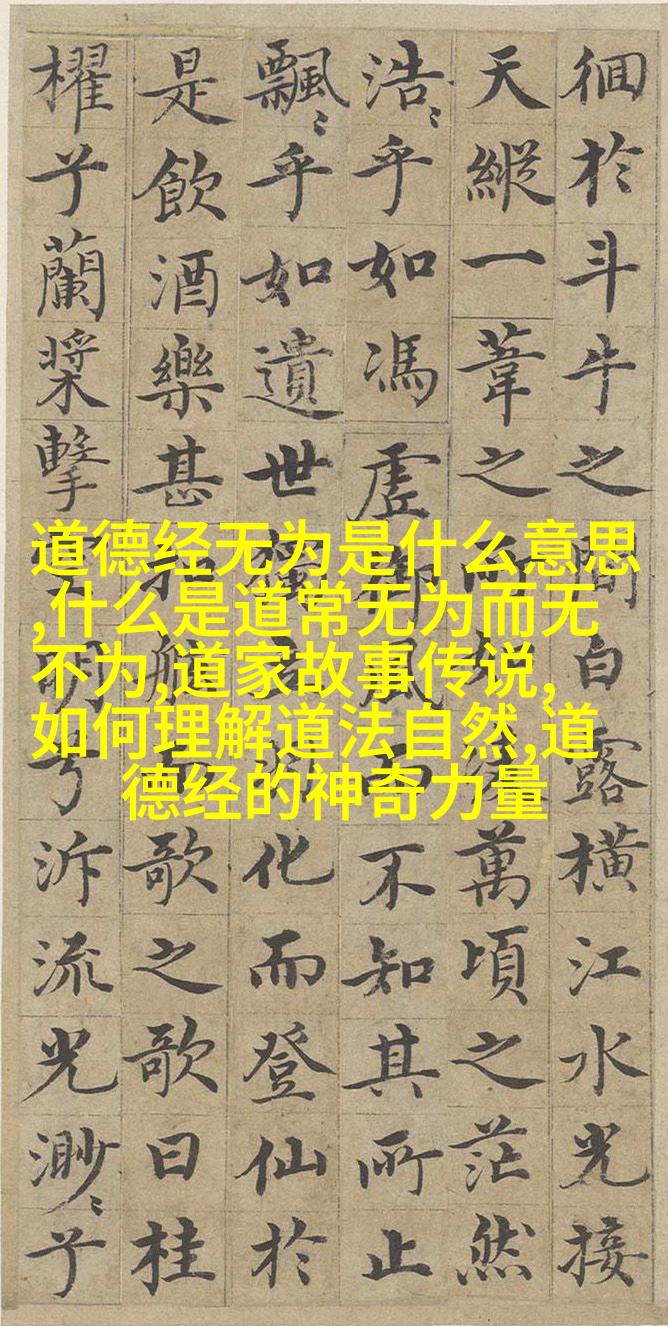 徊於斗牛之間白露橫江水光接
天縱一葦之所如凌萬頃之茫然
浩〻乎如馮虛御風而不知其所止
飄〻乎如遺世獨立羽化而登仙於
是飲酒樂甚扣舷而歌之歌曰桂
櫂兮蘭槳擊空明兮泝流光渺〻兮
道德经无为是什么意思
,什么是道常无为而无
不为,道家故事传说,
如何理解道法自然,道
德经的神奇力量